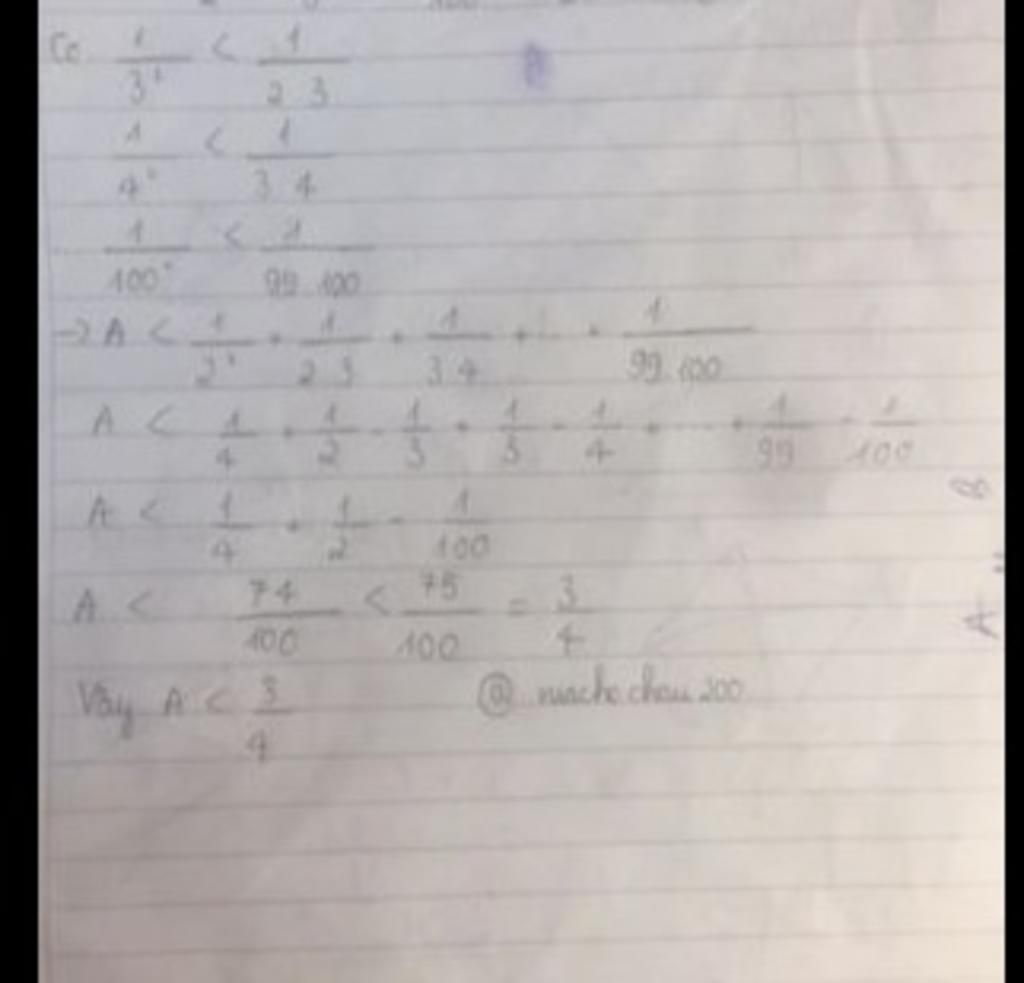 Có 1/3² < 1/2.3
1/4² < 1/3.4
1/100² < 1/99.100
→ A < 1/2² + 1/2.3 + 1/3.4 + ... + 1/99.100
A < 1/4 + 1/2 - 1/3 + 1/3 - 1/4 + ... + 1/99 - 1/100
A < 1/4 + 1/2 - 1/100
A < 74/100 < 75/100 = 3/4
Vậy A < 3/4